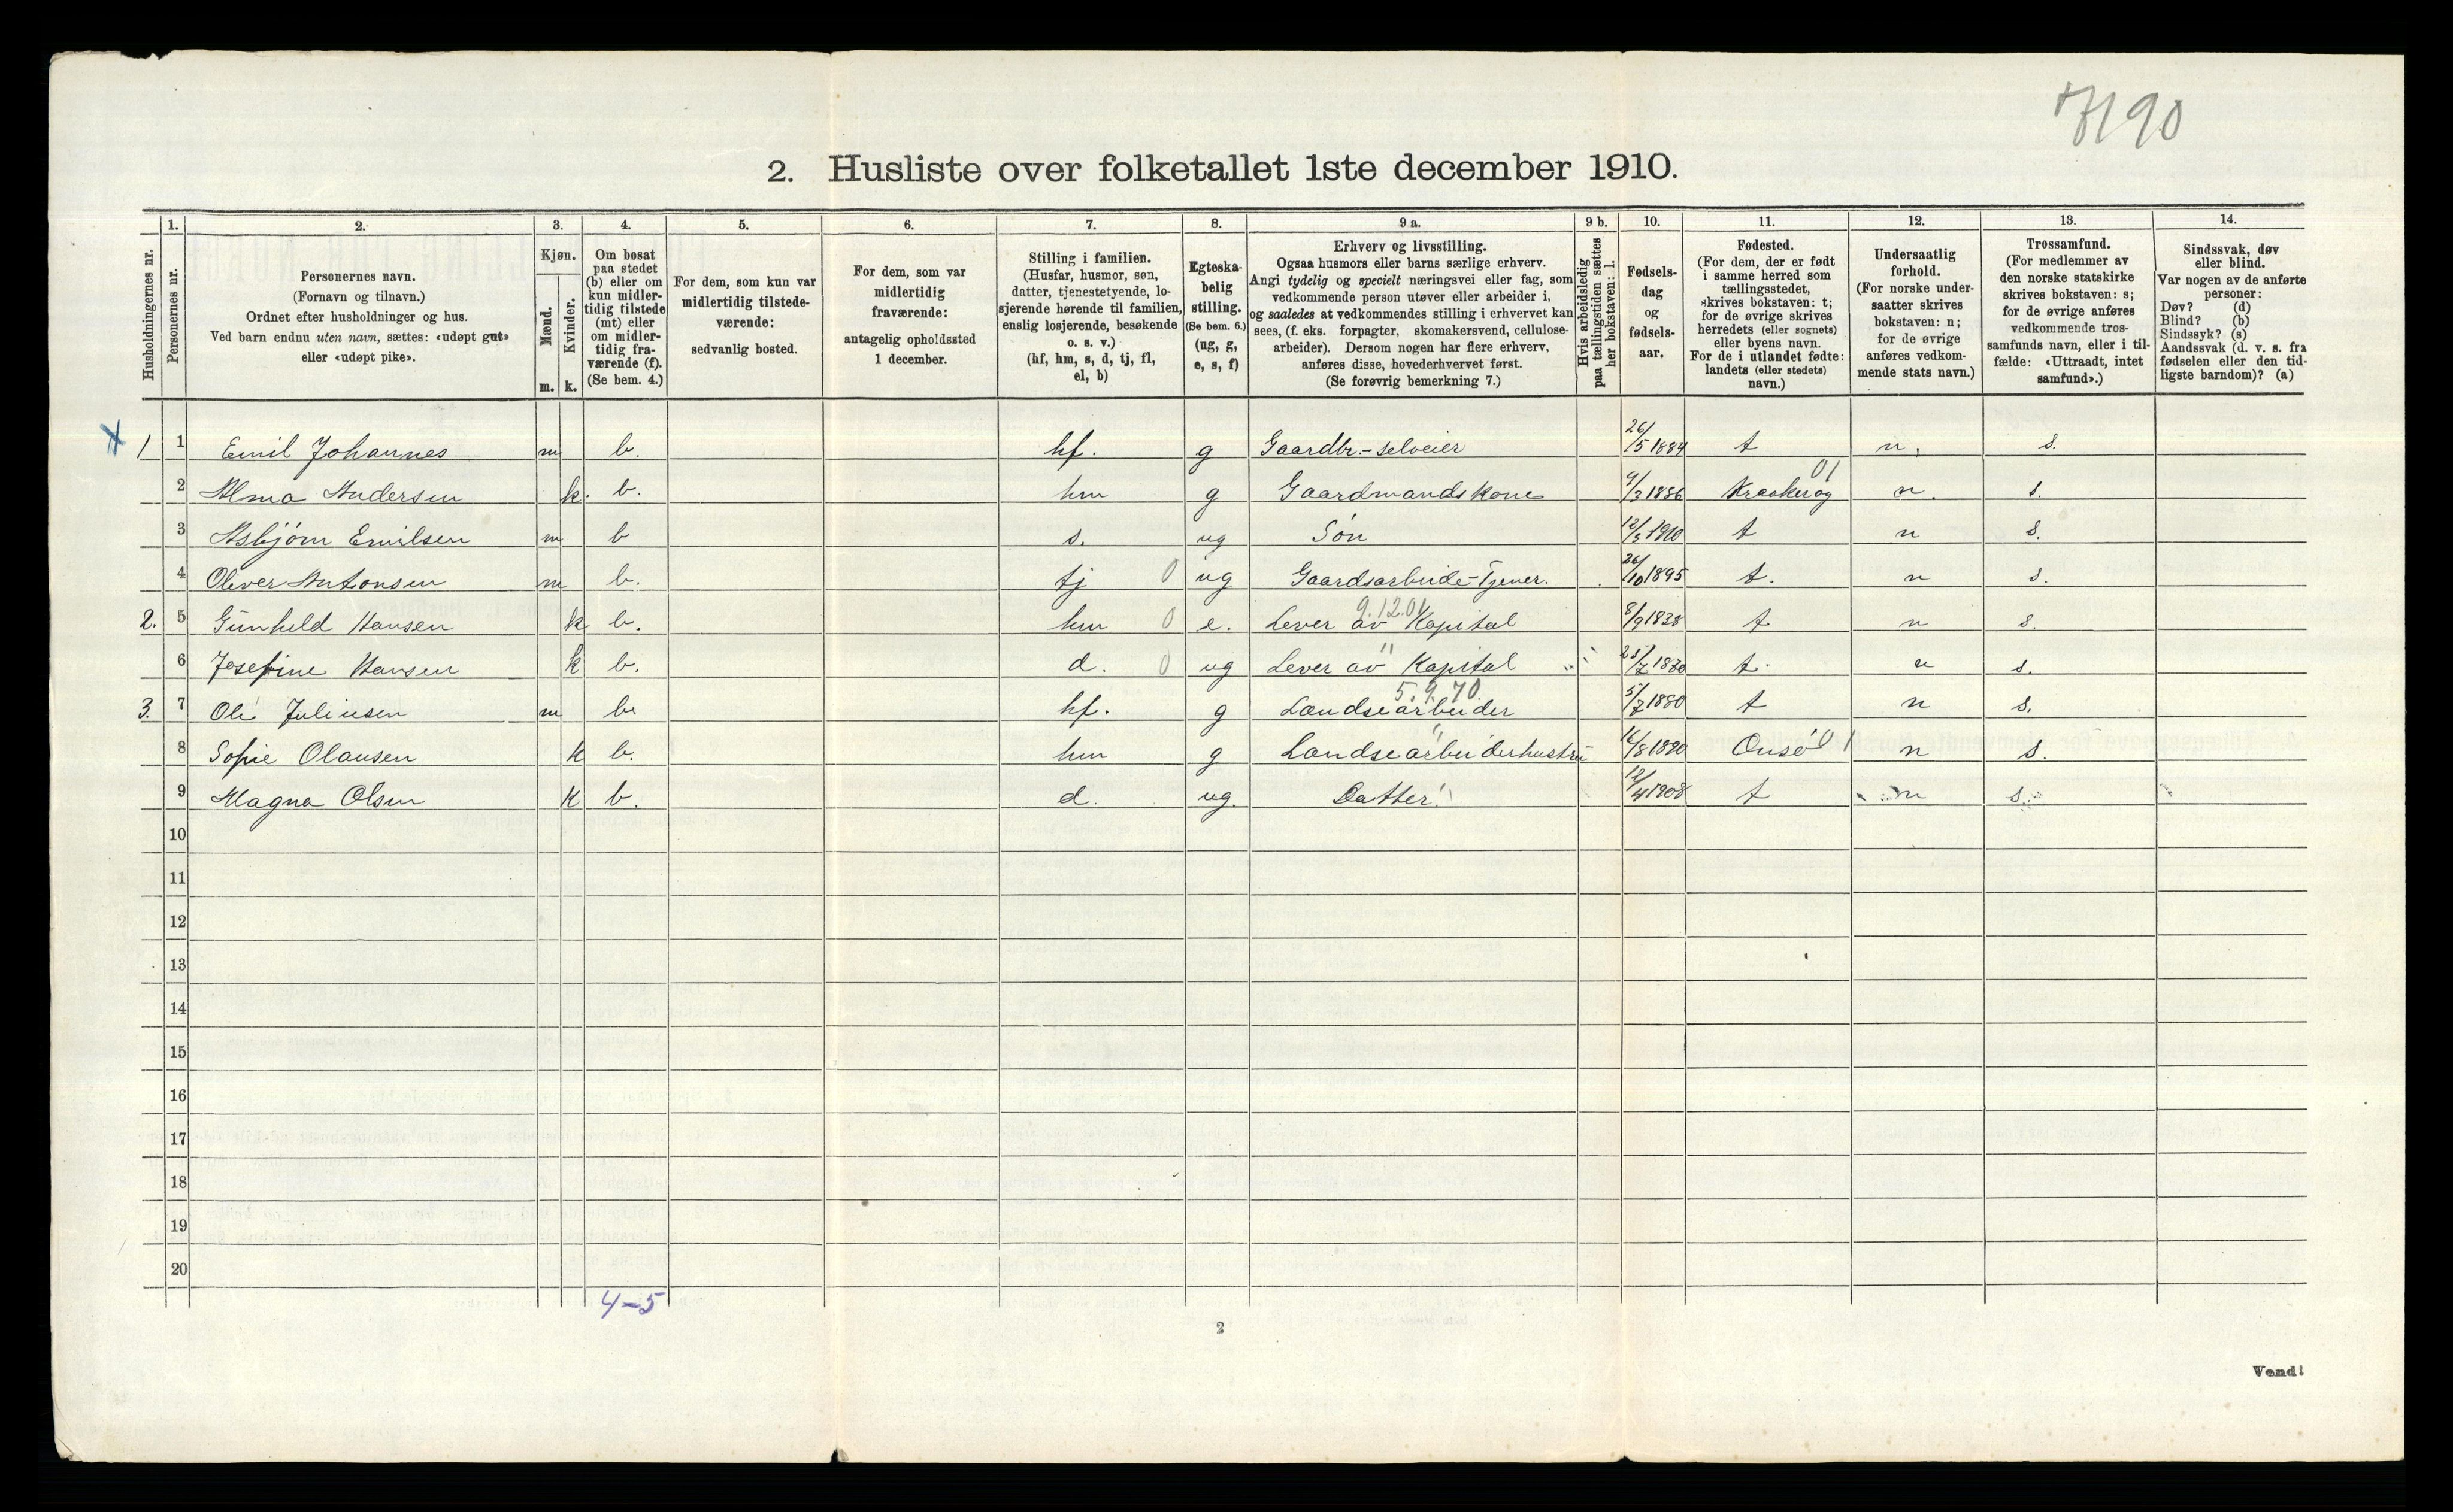 7190
2. Husliste over folketallet 1ste december 1910.
Husholdningernes nr.
1. Personernes nr.
2. Personernes navn.
(Fornavn og tilnavn.)
Ordnet efter husholdninger og hus.
Ved barn endnu uten navn, sættes: «udøpt gut»
eller «udøpt pike».
3. Kjøn.
Mænd. m.
Kvinder. k.
4. Om bosat
paa stedet
(b) eller om
kun midler-
tidig tilstede
(mt) eller
om midler-
tidig fra-
værende (f).
(Se bem. 4.)
5. For dem, som kun var
midlertidig tilstede-
værende:
sedvanlig bosted.
6. For dem, som var
midlertidig
fraværende:
antagelig opholdssted
1 december.
7. Stilling i familien.
(Husfar, husmor, søn,
datter, tjenestetyende, lo-
sjerende hørende til familien,
enslig losjerende, besøkende
o. s. v.)
(hf, hm, s, d, tj, fl,
el, b)
8. Egteska-
belig
stilling.
(Se bem. 6.)
(ug, g,
e, s, f)
9 a. Erhverv og livsstilling.
Ogsaa husmors eller barns særlige erhverv.
Angi tydelig og specielt næringsvei eller fag, som
vedkommende person utøver eller arbeider i,
og saaledes at vedkommendes stilling i erhvervet kan
sees, (f. eks. forpagter, skomakersvend, cellulose-
arbeider). Dersom nogen har flere erhverv,
anføres disse, hovederhvervet først.
(Se forøvrig bemerkning 7.)
9 b. Hvis arbeidsledig
paa tællingstiden sættes
her bokstaven: l.
10. Fødsels-
dag
og
fødsels-
aar.
11. Fødested.
(For dem, der er født
i samme herred som
tællingsstedet,
skrives bokstaven: t;
for de øvrige skrives
herredets (eller sognets)
eller byens navn.
For de i utlandet fødte:
landets (eller stedets)
navn.)
12. Undersaatlig
forhold.
(For norske under-
saatter skrives
bokstaven: n;
for de øvrige
anføres vedkom-
mende stats navn.)
13. Trossamfund.
(For medlemmer av
den norske statskirke
skrives bokstaven: s;
for de øvrige anføres
vedkommende tros-
samfunds navn, eller i til-
fælde: «Uttraadt, intet
samfund».)
14. Sindssvak, døv
eller blind.
Var nogen av de anførte
personer:
Døv? (d)
Blind? (b)
Sindssyk? (s)
Aandssvak (d. v. s. fra
fødselen eller den tid-
ligste barndom)? (a)
1 1 Emil Johannes m b. hf. g Gaardbr.-selveier 26/5 1884 t n. s.
01
2 Alma Andersen k. b. hm g Gaardmandskone 9/3 1886 Kraakerøy n. s.
3 Asbjørn Emilsen m b s. ug Søn 12/5 1910 t n s.
4 Oliver Antonsen m b. tj 0 ug Gaardsarbeide-Tjener. 26/10 1895 t. n s.
9.12.01
2. 5 Gunhild Hansen k b. hm 0 e. Lever av Kapital 8/9 1828 t n s.
6 Josefine Hansen k b. d. 0 ug Lever av " Kapital 25/7 1870 t. n s.
5.9.70.
3. 7 Ole Juliusen m b. hf. g Landsearbeider 5/7 1880 t n s.
8 Sofie Olausen k b. hm g Landsearbeiderhustru 16/8 1890 Onsø 01 n s.
9 Magna Olsen k b. d. ug. Datter 12/4 1908 t n s.
10
11
12
13
14
15
16
17
18
19
20
4-5
2
Vend!